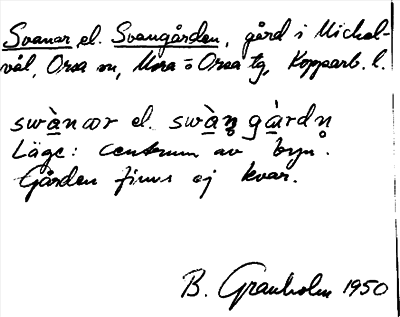 Svanar el. Svangården, gård i Michel-
vål, Orsa sn, Mora o Orsa tg, Kopparb. l.
swànær el. swàn̥ gàrdn̥
Läge: centrum av byn.
Gården finns ej kvar.
B. Granholm 1950